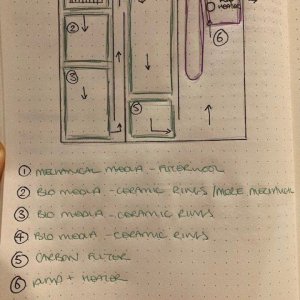 HEATER
②
③
⑤
⑥
① MECHANICAL MEDIA - FILTER WOOL
② BIO MEDIA - CERAMIC RINGS / MORE MECHANICAL
③ BIO MEDIA - CERAMIC RINGS
④ BIO MEDIA - CERAMIC RINGS
⑤ CARBON FILTER
⑥ PUMP + HEATER